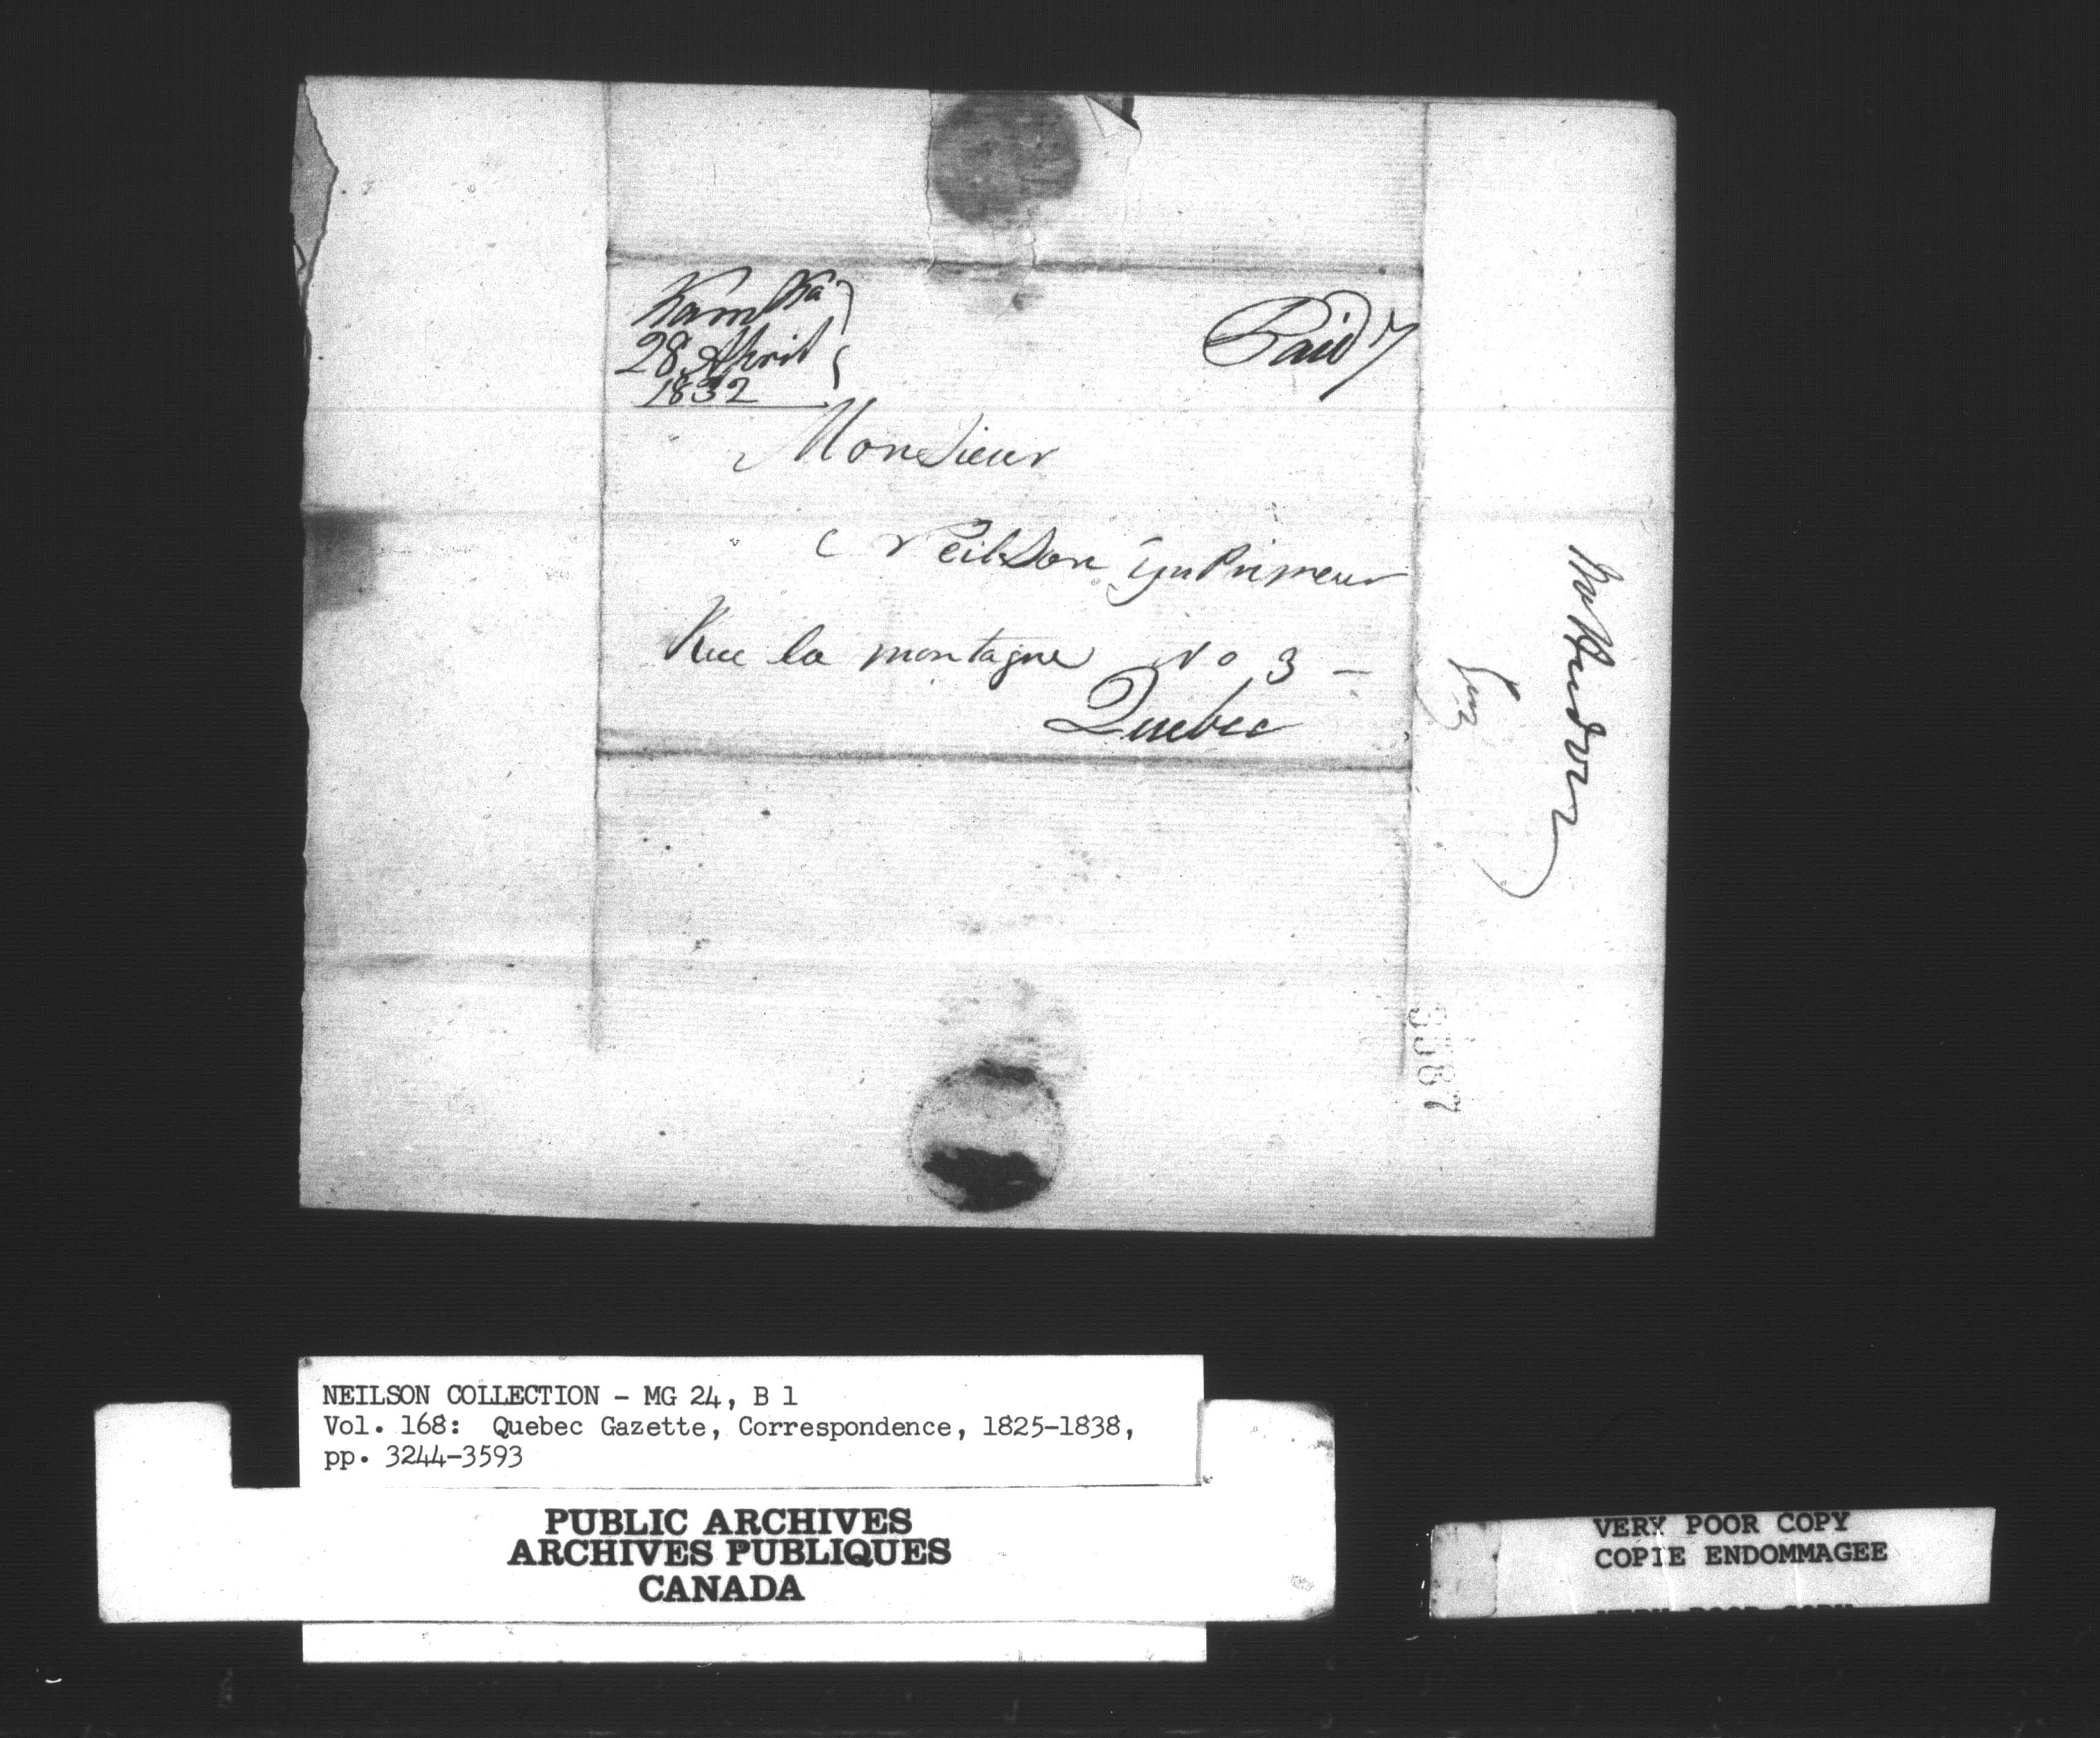 Kamka
28 April
1832
Paid 7
Monsieur
Neilson imprimeur
Rue la montagne No 3 —
Quebec
Hudon
3387
NEILSON COLLECTION - MG 24, B 1
Vol. 168: Quebec Gazette, Correspondence, 1825-1838,
pp. 3244-3593
PUBLIC ARCHIVES
ARCHIVES PUBLIQUES
CANADA
VERY POOR COPY
COPIE ENDOMMAGEE
VERY POOR COPY